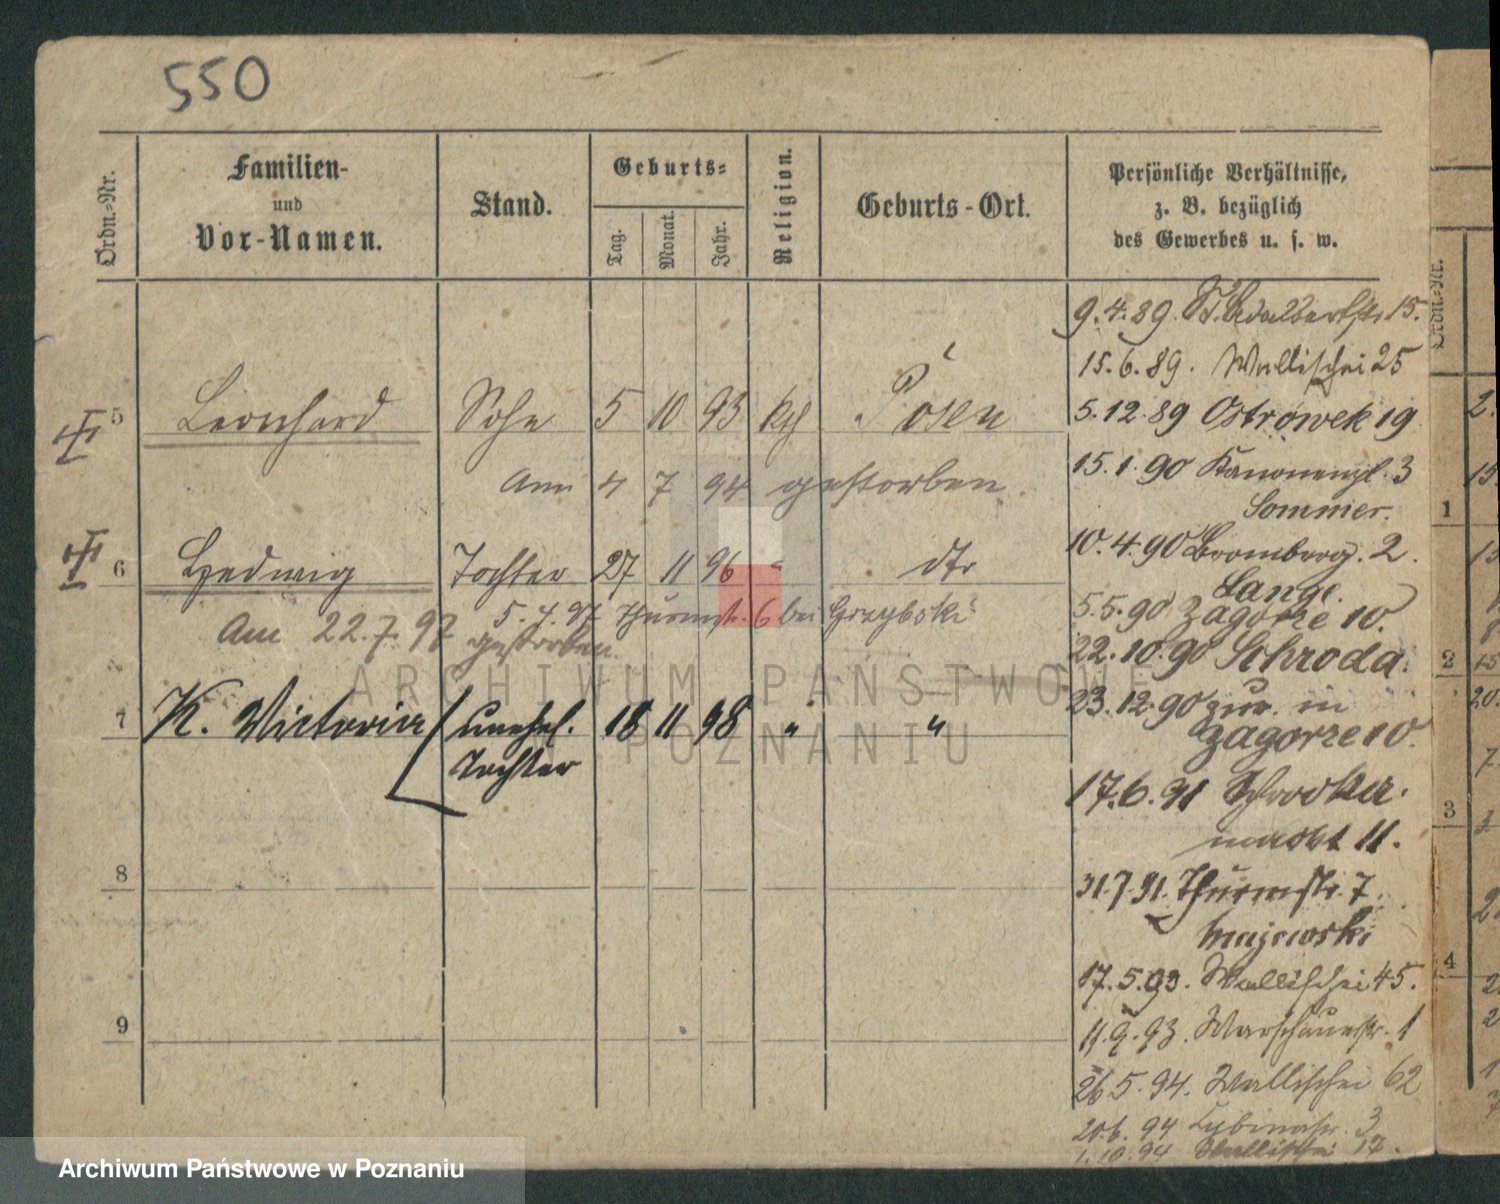 550
Ordn.-Nr.
Familien-
und
Vor-Namen.
Stand.
Geburts-
Tag.
Monat.
Jahr.
Religion.
Geburts-Ort.
Persönliche Verhältnisse,
z. B. bezüglich
des Gewerbes u. s. w.
9.4.89. St. Adalbertstr 15.
15.6.89. Wallischei 25
5 Leonhard Sohn 5 10 93 kth Posen
5.12.89 Ostrowek 19
am 4 7 94 gestorben.
15.1.90 Kanonenpl. 3
Sommer.
10.4.90 Bromberg. 2.
6 Hedwig Tochter 27 11 96 " dto
Lange.
5.5.90 Zagorze 10.
5.4.97 Thurmstr. 6 bei Grzybski
Am 22.7.97 gestorben.
22.10.90 Schroda.
23.12.90 zur. in
Zagorze 10.
7 K. Victoria unehel. 18 11 98 " "
Tochter
17.6.91 Schrodka
markt 11.
8
31.7.91. Thurmstr. 7
Majewski
17.5.93. Wallischei 45.
9
11.9.93. Warschauerstr. 1
26.5.94. Wallischei 62
20.6.94 Cybinastr. 3
1.10.94 Wallischei 17.
Ordn.-Nr.
1
2
3
4
ARCHIWUM PAŃSTWOWE
W POZNANIU
Archiwum Państwowe w Poznaniu